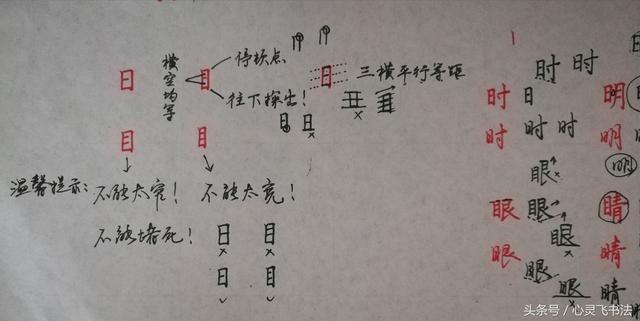 横空均等
停顿点
往下探出！
三横平行等距
日 目 日
日 目
温馨提示：不能太宽！ 不能太宽！
不能堵死！
日 日
日 日
时 日 时 时 明
时 时 时 明
眼 明
眼 眼 睛
眼 睛
眼 眼 睛
头条号／心灵飞书法